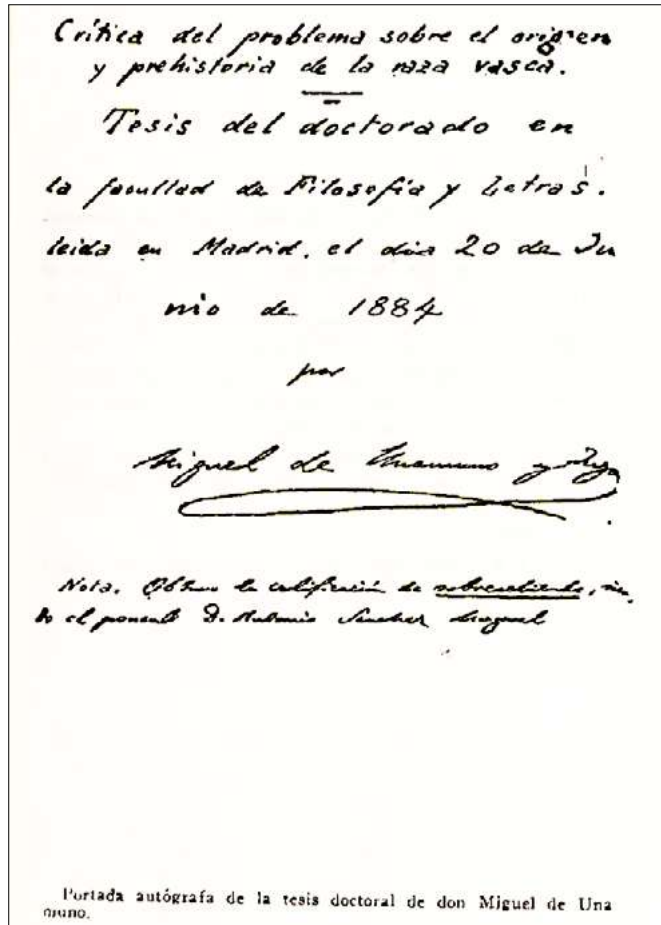 Crítica del problema sobre el origen
y prehistoria de la raza vasca.
Tesis del doctorado en
la facultad de Filosofía y Letras.
leida en Madrid, el dia 20 de Ju
nio de 1884
por
Miguel de Unamuno y Jugo
Nota. Obtuvo la calificación de sobresaliente, sien
do el ponente D. Antonio Sánchez Moguel
Portada autógrafa de la tesis doctoral de don Miguel de Una
muno.